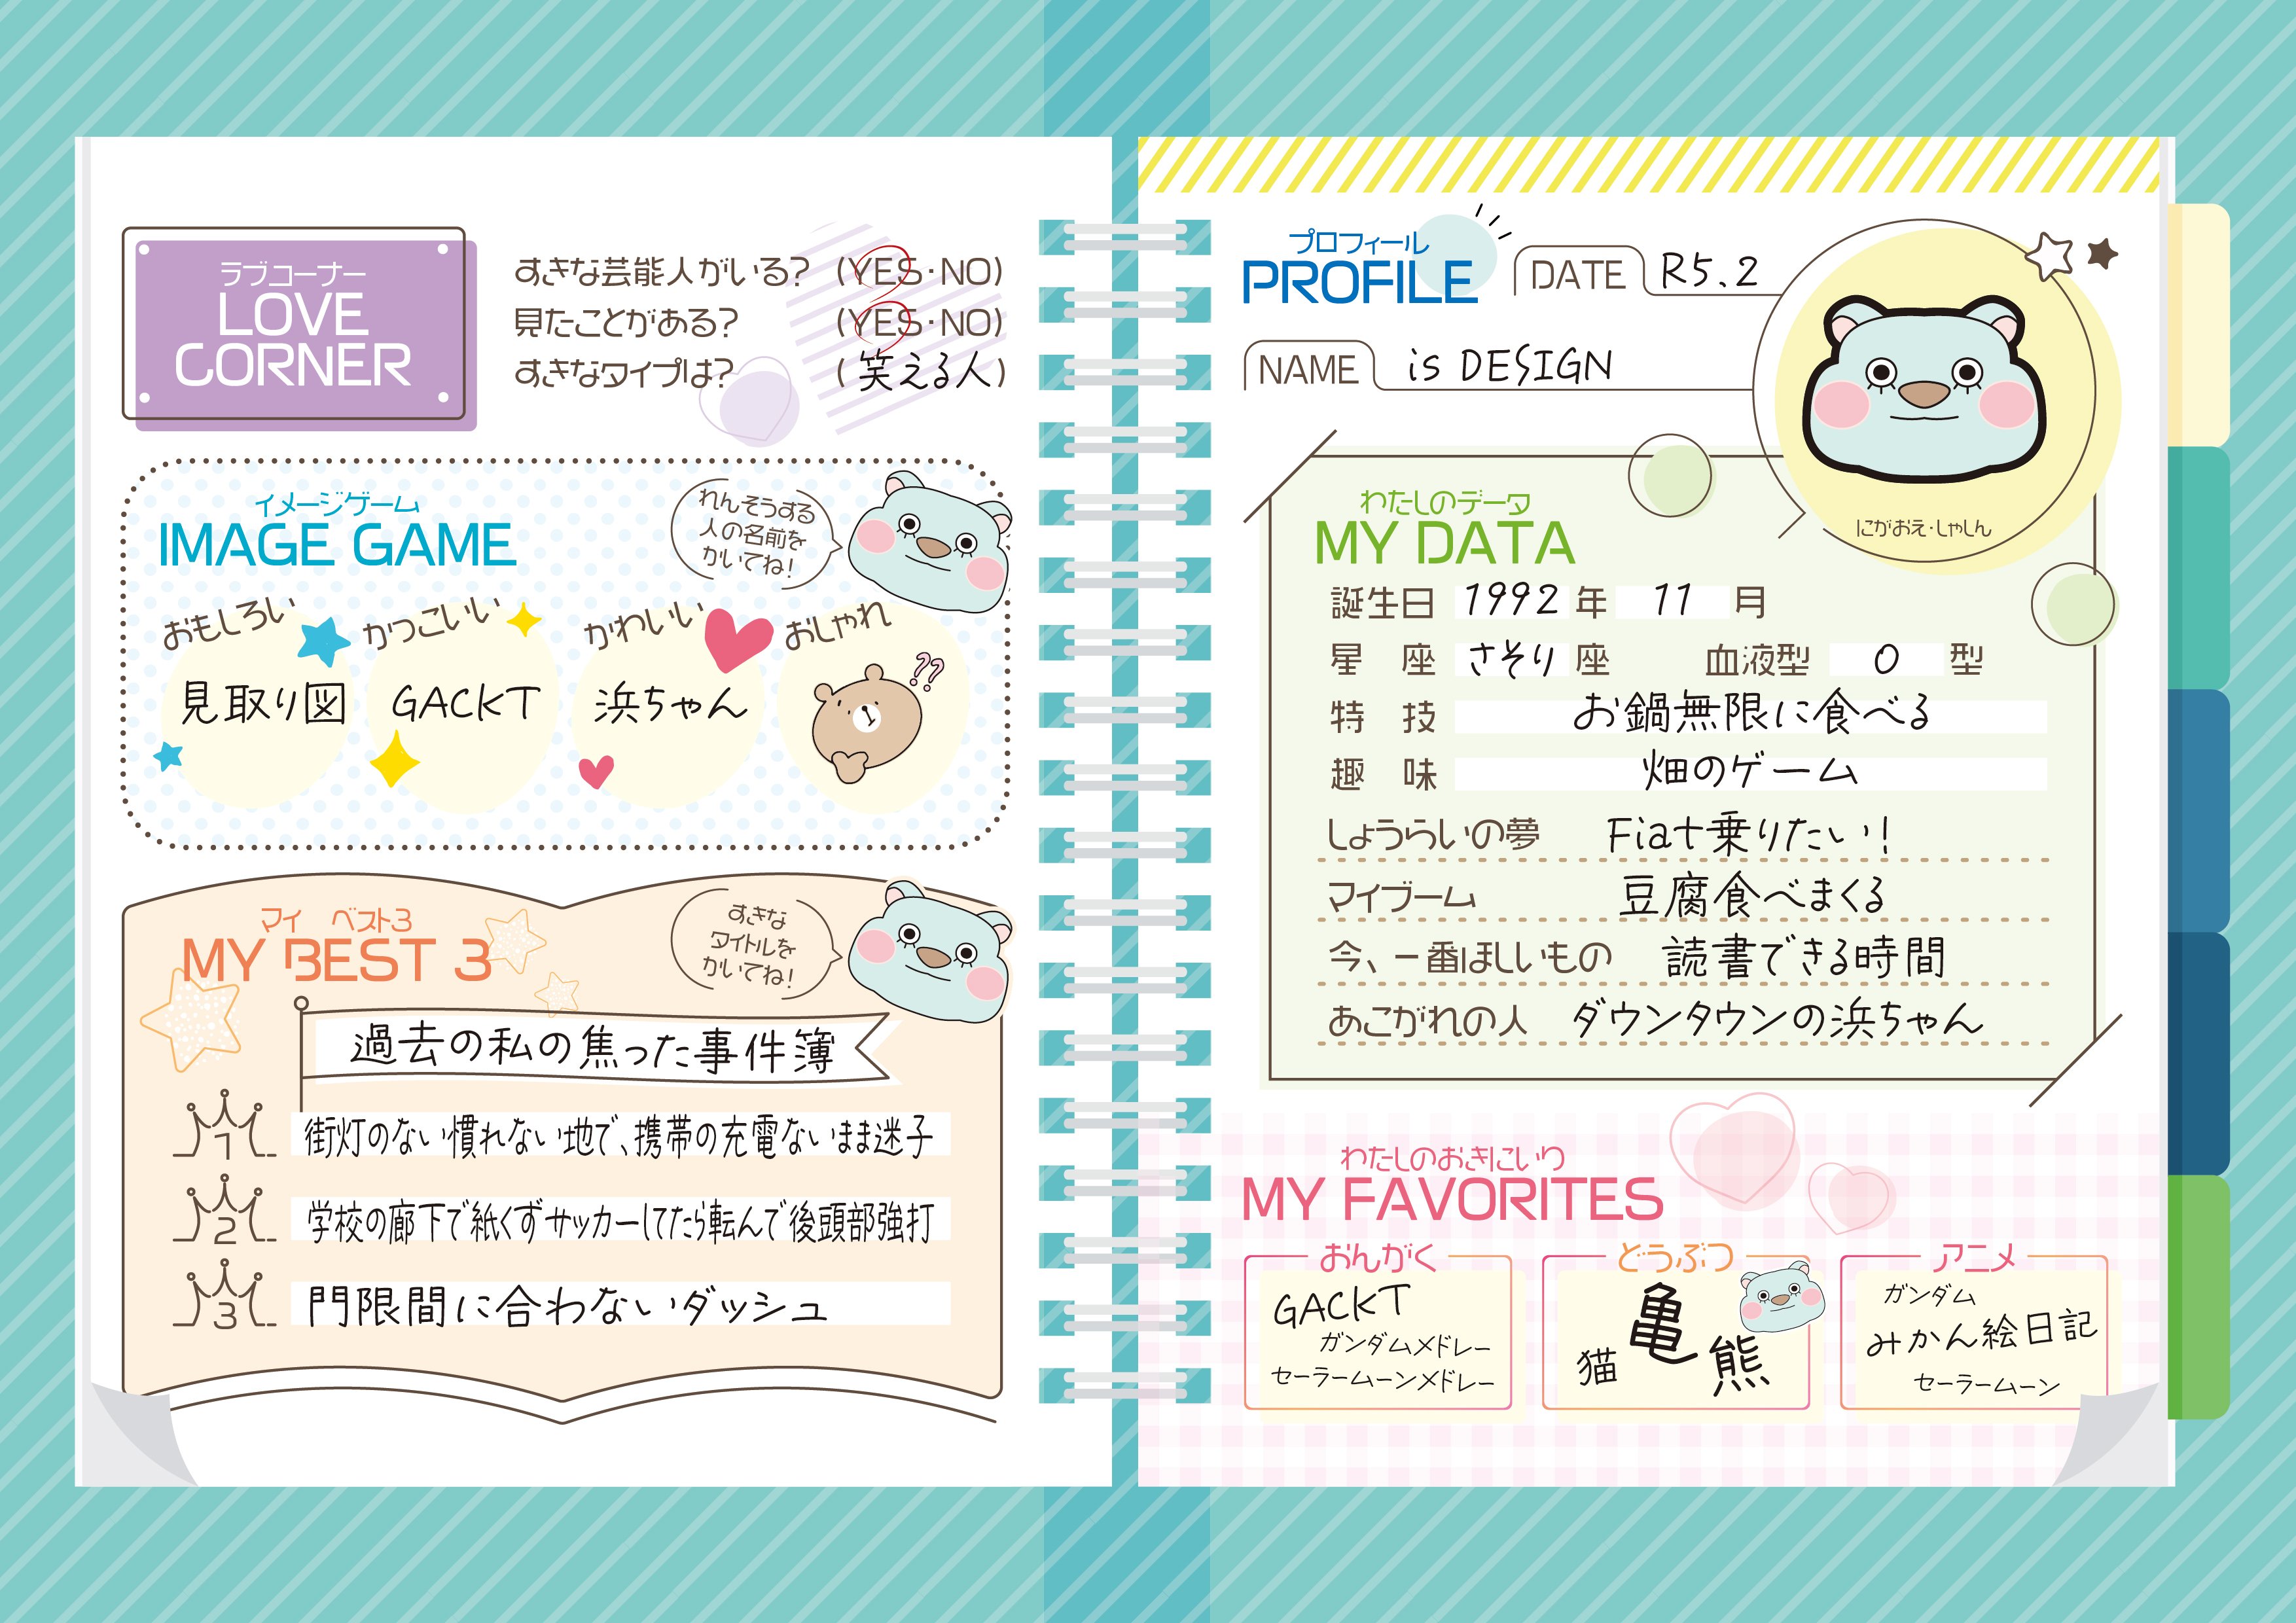 ラブコーナー
LOVE
CORNER
すきな芸能人がいる? (YES・NO)
見たことがある? (YES・NO)
すきなタイプは? (笑える人)
イメージゲーム
IMAGE GAME
れんそうする
人の名前を
かいてね!
おもしろい かっこいい かわいい おしゃれ
見取り図 GACKT 浜ちゃん ??
マイ ベスト3
MY BEST 3
すきな
タイトルを
かいてね!
過去の私の焦った事件簿
1 街灯のない慣れない地で、携帯の充電ないまま迷子
2 学校の廊下で紙くずサッカーしてたら転んで後頭部強打
3 門限間に合わないダッシュ
プロフィール
PROFILE
DATE R5.2
NAME is DESIGN
にがおえ・しゃしん
わたしのデータ
MY DATA
誕生日 1992 年 11 月
星 座 さそり 座 血液型 O 型
特 技 お鍋無限に食べる
趣 味 畑のゲーム
しょうらいの夢 Fiat乗りたい!
マイブーム 豆腐食べまくる
今、一番ほしいもの 読書できる時間
あこがれの人 ダウンタウンの浜ちゃん
わたしのおきにいり
MY FAVORITES
おんがく
GACKT
ガンダムメドレー
セーラームーンメドレー
どうぶつ
猫 亀 熊
アニメ
ガンダム
みかん絵日記
セーラームーン